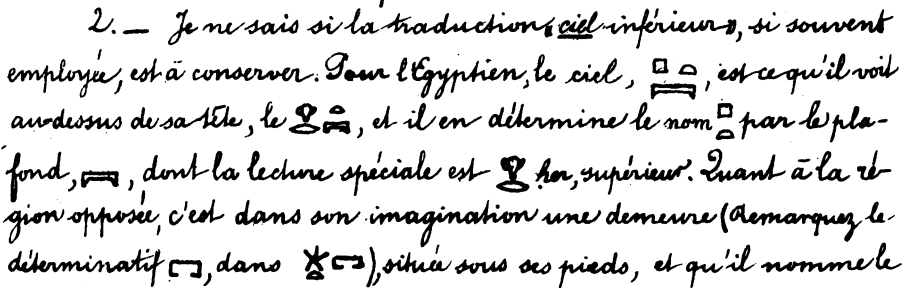 2. — Je ne sais si la traduction « ciel inférieur », si souvent
employée, est à conserver. Pour l'Egyptien, le ciel, 𓊪𓏏𓇯, est ce qu'il voit
au-dessus de sa tête, le 𓁷𓏏𓇯, et il en détermine le nom 𓊪𓏏 par le pla-
fond, 𓇯, dont la lecture spéciale est 𓁷 her, supérieur. Quant à la ré-
gion opposée, c'est dans son imagination une demeure (Remarquez le
déterminatif 𓉐, dans 𓇼𓏏𓉐), située sous ses pieds, et qu'il nomme le